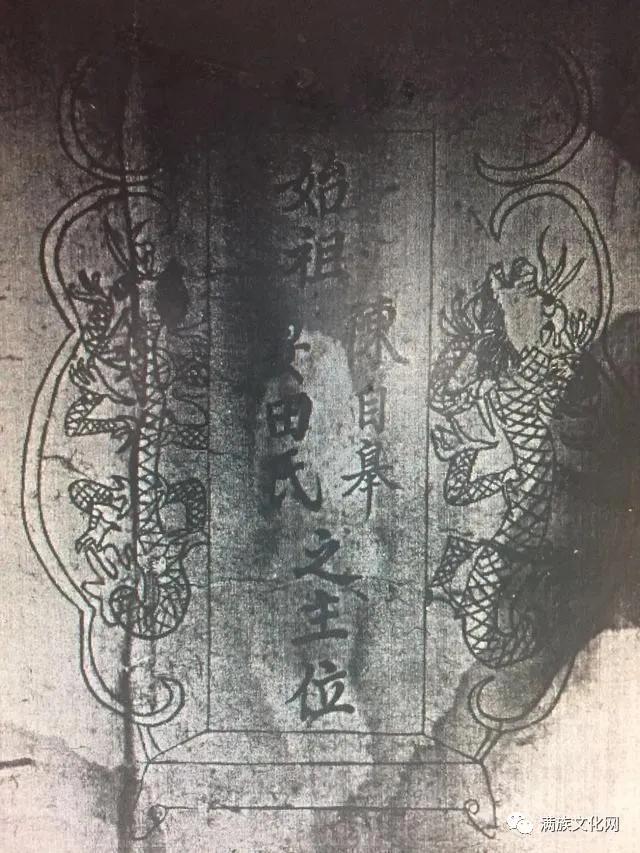 始祖
陳自皋
田氏
之主位
满族文化网